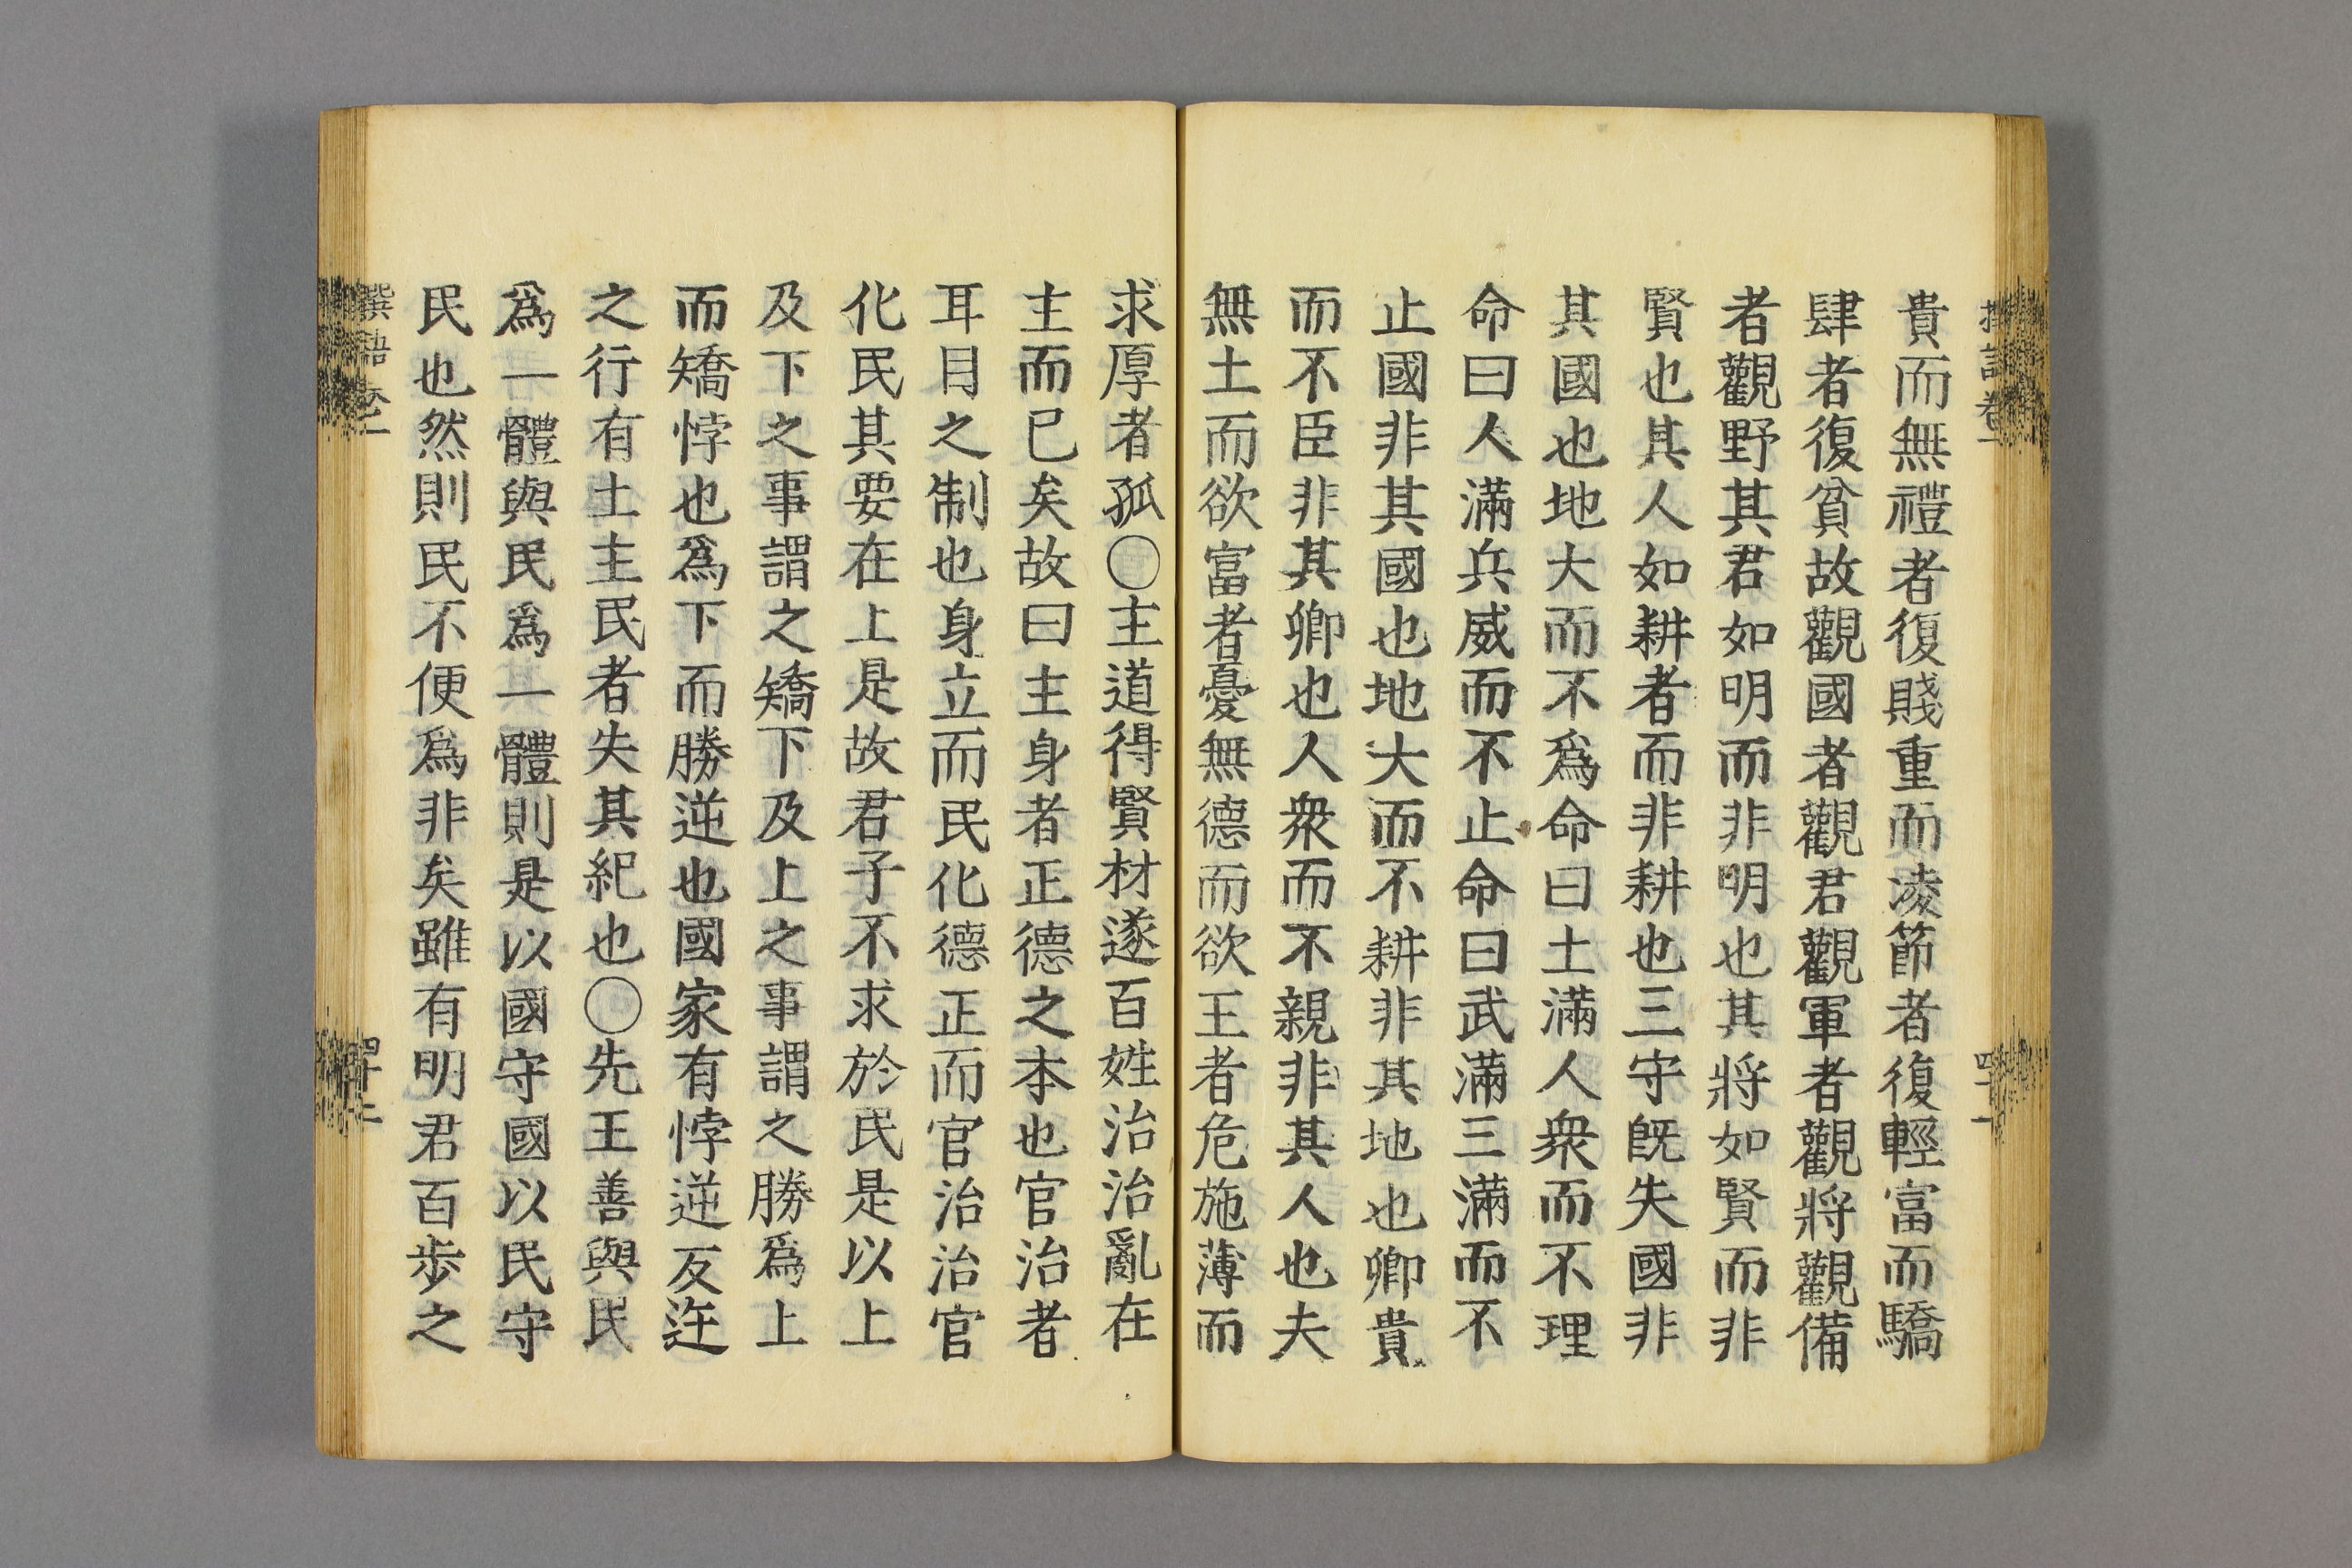 貴而無禮者復賤重而凌節者復輕富而驕
肆者復貧故觀國者觀君觀軍者觀將觀備
者觀野其君如明而非明也其將如賢而非
賢也其人如耕者而非耕也三守旣失國非
其國也地大而不爲命曰土滿人衆而不理
命曰人滿兵威而不止命曰武滿三滿而不
止國非其國也地大而不耕非其地也卿貴
而不臣非其卿也人衆而不親非其人也夫
無土而欲富者憂無德而欲王者危施薄而
求厚者孤○主道得賢材遂百姓治治亂在
主而已矣故曰主身者正德之本也官治者
耳目之制也身立而民化德正而官治治官
化民其要在上是故君子不求於民是以上
及下之事謂之矯下及上之事謂之勝爲上
而矯悖也爲下而勝逆也國家有悖逆反迕
之行有土主民者失其紀也○先王善與民
爲一體與民爲一體則是以國守國以民守
民也然則民不便爲非矣雖有明君百歩之
撰語卷一
四十二